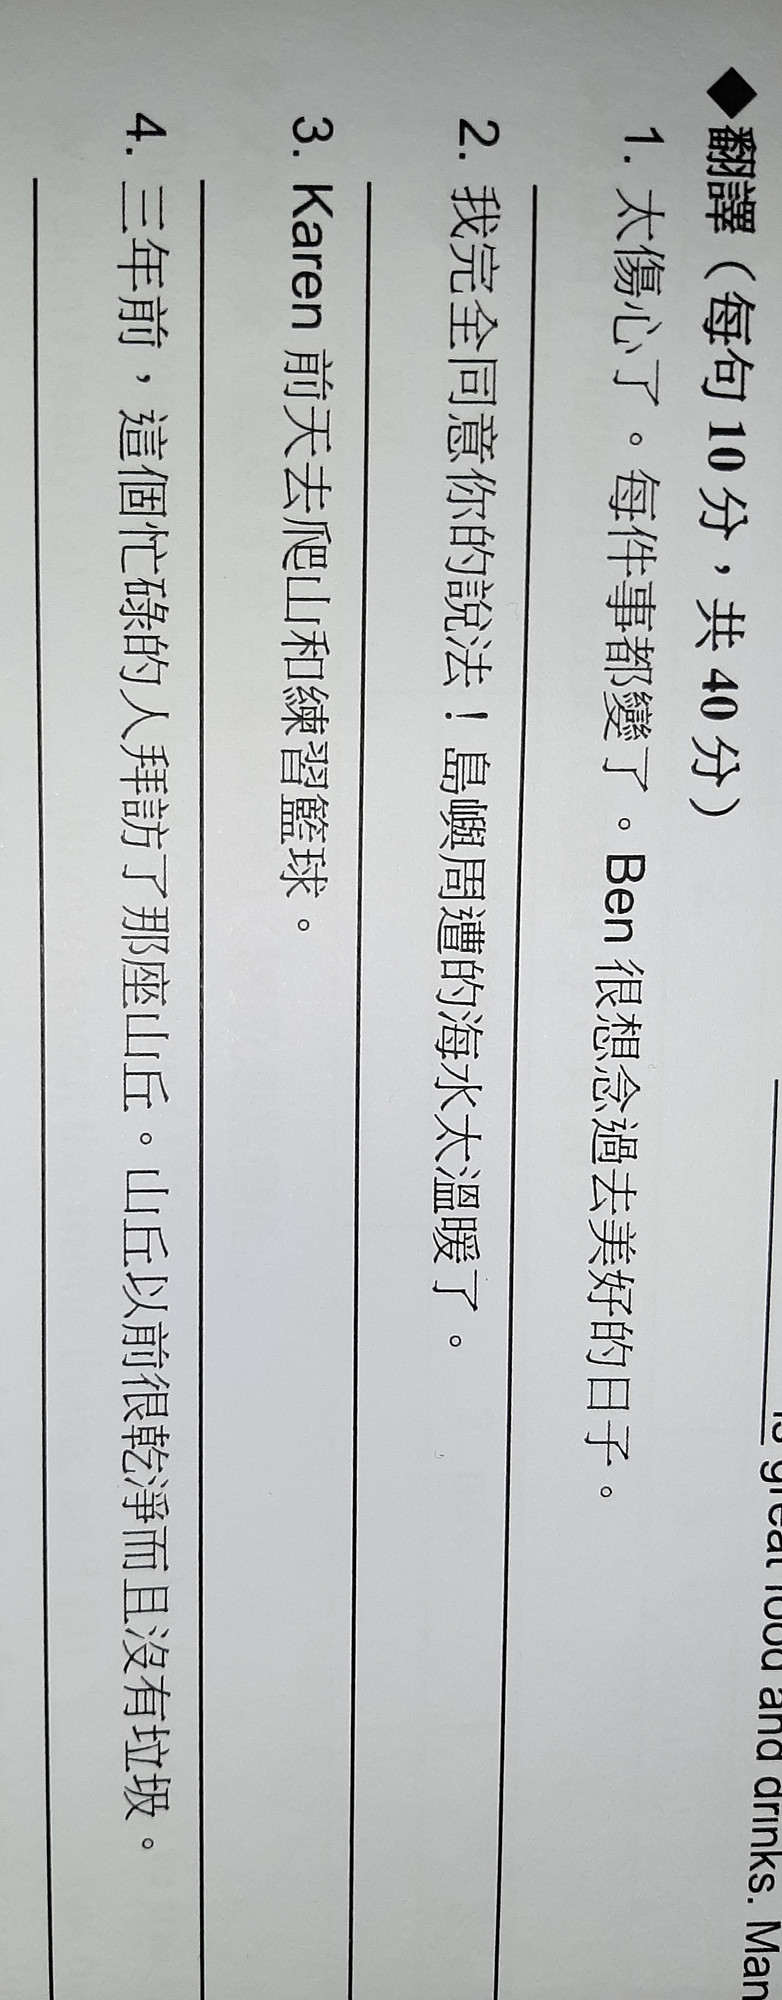 is great food and drinks. Man
◆翻譯（每句 10 分，共 40 分）
1. 太傷心了。每件事都變了。Ben 很想念過去美好的日子。
2. 我完全同意你的說法！島嶼周遭的海水太溫暖了。
3. Karen 前天去爬山和練習籃球。
4. 三年前，這個忙碌的人拜訪了那座山丘。山丘以前很乾淨而且沒有垃圾。